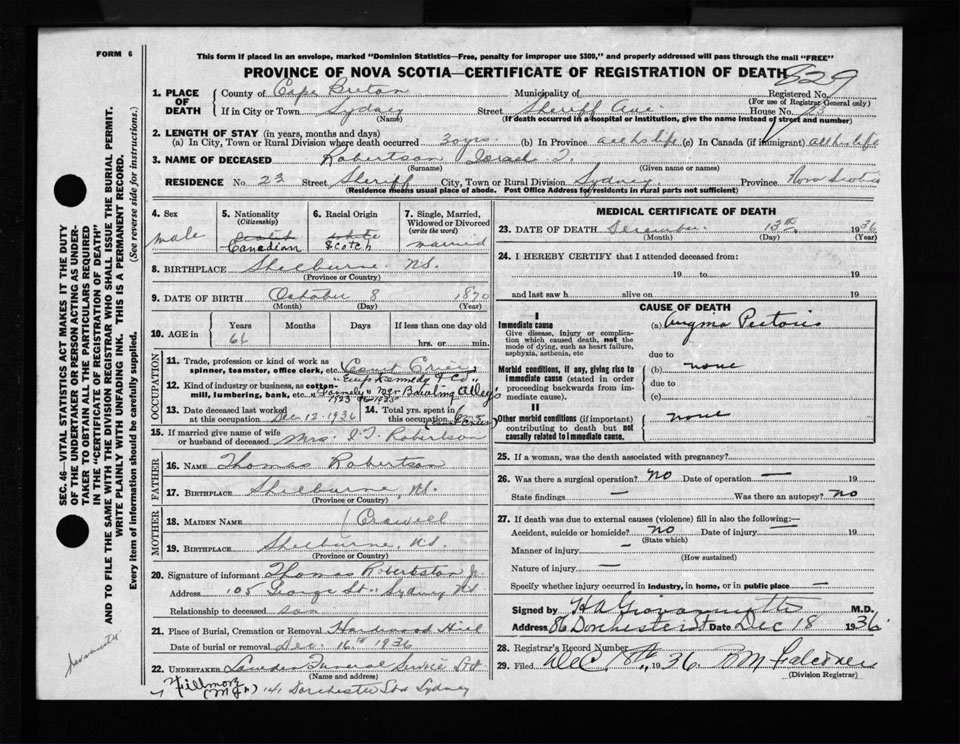 FORM 6
This form if placed in an envelope, marked "Dominion Statistics—Free, penalty for improper use $300," and properly addressed will pass through the mail "FREE"
PROVINCE OF NOVA SCOTIA—CERTIFICATE OF REGISTRATION OF DEATH 829
1. PLACE OF DEATH
County of Cape Breton Municipality of Registered No.
(For use of Registrar General only)
If in City or Town Sydney Street Sheriff Ave. House No. 23
(Name) (If death occurred in a hospital or institution, give the name instead of street and number)
2. LENGTH OF STAY (in years, months and days)
(a) In City, Town or Rural Division where death occurred 30 yrs. (b) In Province all his life (c) In Canada (if immigrant) all his life
3. NAME OF DECEASED Robertson Israel T.
(Surname) (Given name or names)
RESIDENCE No. 23 Street Sheriff City, Town or Rural Division Sydney Province Nova Scotia
(Residence means usual place of abode. Post Office Address for residents in rural parts not sufficient)
4. Sex male
5. Nationality (Citizenship) Canadian
6. Racial Origin white Scotch
7. Single, Married, Widowed or Divorced (write the word) married
8. BIRTHPLACE Shelburne N.S.
(Province or Country)
9. DATE OF BIRTH October 8 1870
(Month) (Day) (Year)
10. AGE in Years Months Days If less than one day old
66 hrs. or min.
OCCUPATION
11. Trade, profession or kind of work as spinner, teamster, office clerk, etc. Court Crier
12. Kind of industry or business, as cotton-mill, lumbering, bank, etc. "Formerly" Mgr Bowling Alleys
Kennedy & Co"
13. Date deceased last worked at this occupation Dec 12 - 1936
14. Total yrs. spent in this occupation
15. If married give name of wife or husband of deceased Mrs. I. T. Robertson
FATHER
16. NAME Thomas Robertson
17. BIRTHPLACE Shelburne, N.S.
(Province or Country)
MOTHER
18. MAIDEN NAME Crowell
19. BIRTHPLACE Shelburne, N.S.
(Province or Country)
20. Signature of informant Thomas Robertson Jr
Address 105 George St., Sydney NS
Relationship to deceased son
21. Place of Burial, Cremation or Removal Hardwood Hill
Date of burial or removal Dec. 16th 1936
22. UNDERTAKER Funeral Service Ltd
(Name and address)
Fillmore (Mgr) 141 Dorchester St Sydney
MEDICAL CERTIFICATE OF DEATH
23. DATE OF DEATH December 13th 1936
(Month) (Day) (Year)
24. I HEREBY CERTIFY that I attended deceased from:
19 to 19
and last saw h alive on 19
CAUSE OF DEATH
I
Immediate cause (a) Angina Pectoris
Give disease, injury or complication which caused death, not the mode of dying, such as heart failure, asphyxia, asthenia, etc
due to
Morbid conditions, if any, giving rise to immediate cause (stated in order proceeding backwards from immediate cause).
(b) none
due to
(c)
II
Other morbid conditions (if important) contributing to death but not causally related to immediate cause. none
25. If a woman, was the death associated with pregnancy?
26. Was there a surgical operation? No Date of operation —
State findings — Was there an autopsy? No
27. If death was due to external causes (violence) fill in also the following:—
Accident, suicide or homicide? no Date of injury — 19
(State which)
Manner of injury —
(How sustained)
Nature of injury —
Specify whether injury occurred in industry, in home, or in public place —
Signed by H A Giovannetti M.D.
Address 86 Dorchester St Date Dec 18 1936
28. Registrar's Record Number
29. Filed Dec. 1936
(Division Registrar)
SEC. 46—VITAL STATISTICS ACT MAKES IT THE DUTY
OF THE UNDERTAKER OR PERSON ACTING AS UNDER-
TAKER TO OBTAIN ALL THE PARTICULARS REQUIRED
IN THE "CERTIFICATE OF REGISTRATION OF DEATH"
AND TO FILE THE SAME WITH THE DIVISION REGISTRAR WHO SHALL ISSUE THE BURIAL PERMIT.
WRITE PLAINLY WITH UNFADING INK. THIS IS A PERMANENT RECORD.
Every item of information should be carefully supplied. (See reverse side for instructions.)